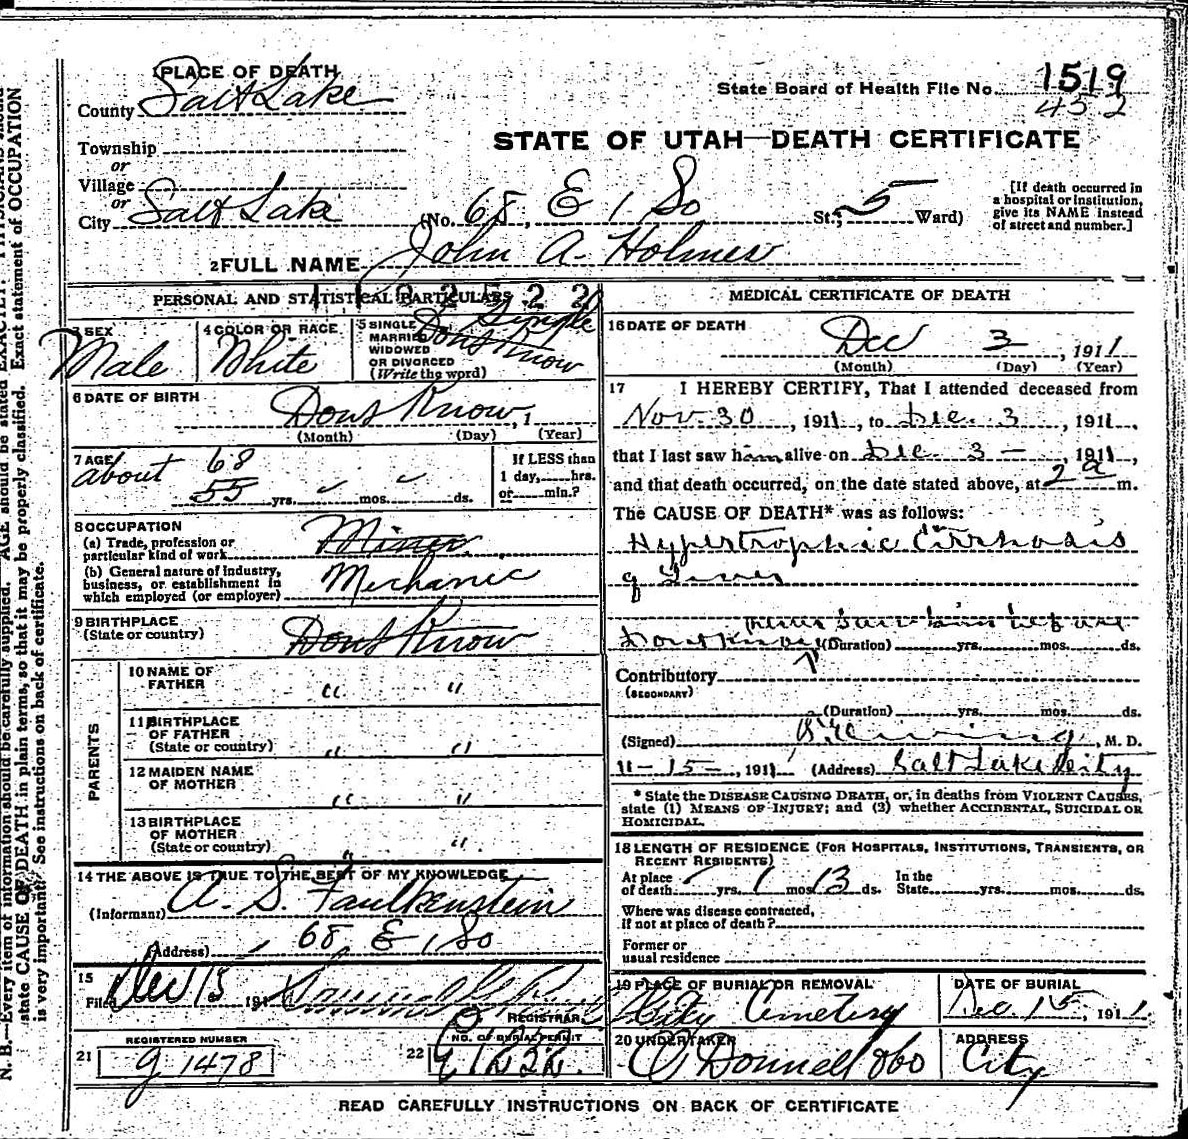 N. B.—Every item of information should be carefully supplied. AGE should be stated EXACTLY. PHYSICIANS should
state CAUSE OF DEATH in plain terms, so that it may be properly classified. Exact statement of OCCUPATION
is very important. See instructions on back of certificate.
1 PLACE OF DEATH
County Salt Lake
State Board of Health File No. 1519
452
STATE OF UTAH—DEATH CERTIFICATE
Township
or
Village
or
City Salt Lake (No. 68, E 1 So St.; 5 Ward)
[If death occurred in
a hospital or institution,
give its NAME instead
of street and number.]
2 FULL NAME John A. Holmes
PERSONAL AND STATISTICAL PARTICULARS
3 SEX
Male
4 COLOR OR RACE
White
5 SINGLE
MARRIED
WIDOWED
OR DIVORCED
(Write the word)
Single
Dont Know
6 DATE OF BIRTH
Dont Know, 1
(Month) (Day) (Year)
7 AGE
about 68
55 yrs. mos. ds.
If LESS than
1 day, hrs.
or min.?
8 OCCUPATION
(a) Trade, profession or
particular kind of work Miner
(b) General nature of industry,
business, or establishment in
which employed (or employer) Mechanic
9 BIRTHPLACE
(State or country) Dont Know
PARENTS
10 NAME OF
FATHER " "
11 BIRTHPLACE
OF FATHER
(State or country) " "
12 MAIDEN NAME
OF MOTHER " "
13 BIRTHPLACE
OF MOTHER
(State or country) " "
14 THE ABOVE IS TRUE TO THE BEST OF MY KNOWLEDGE
(Informant) A. S. Faulkenstein
(Address) 68 E 1 So
15
Filed Dec 15 191
REGISTRAR
21
REGISTERED NUMBER
g 1478
22
NO. OF BURIAL PERMIT
MEDICAL CERTIFICATE OF DEATH
16 DATE OF DEATH
Dec 3, 1911
(Month) (Day) (Year)
17 I HEREBY CERTIFY, That I attended deceased from
Nov 30, 1911, to Dec. 3, 1911,
that I last saw him alive on Dec. 3 — 1911,
and that death occurred, on the date stated above, at 2 a m.
The CAUSE OF DEATH* was as follows:
Hypertrophic Cirrhosis
of Liver
never saw him before
Dont Know (Duration) yrs. mos. ds.
Contributory
(SECONDARY)
(Duration) yrs. mos. ds.
(Signed) , M. D.
11-15-, 1911 (Address) Salt Lake City
* State the DISEASE CAUSING DEATH, or, in deaths from VIOLENT CAUSES,
state (1) MEANS OF INJURY; and (2) whether ACCIDENTAL, SUICIDAL OR
HOMICIDAL.
18 LENGTH OF RESIDENCE (FOR HOSPITALS, INSTITUTIONS, TRANSIENTS, OR
RECENT RESIDENTS)
At place
of death yrs. 1 mos. 13 ds. In the
State yrs. mos. ds.
Where was disease contracted,
if not at place of death?
Former or
usual residence
19 PLACE OF BURIAL OR REMOVAL
City Cemetery
DATE OF BURIAL
Dec. 15, 1911.
20 UNDERTAKER
O'Donnell & Co
ADDRESS
City
READ CAREFULLY INSTRUCTIONS ON BACK OF CERTIFICATE